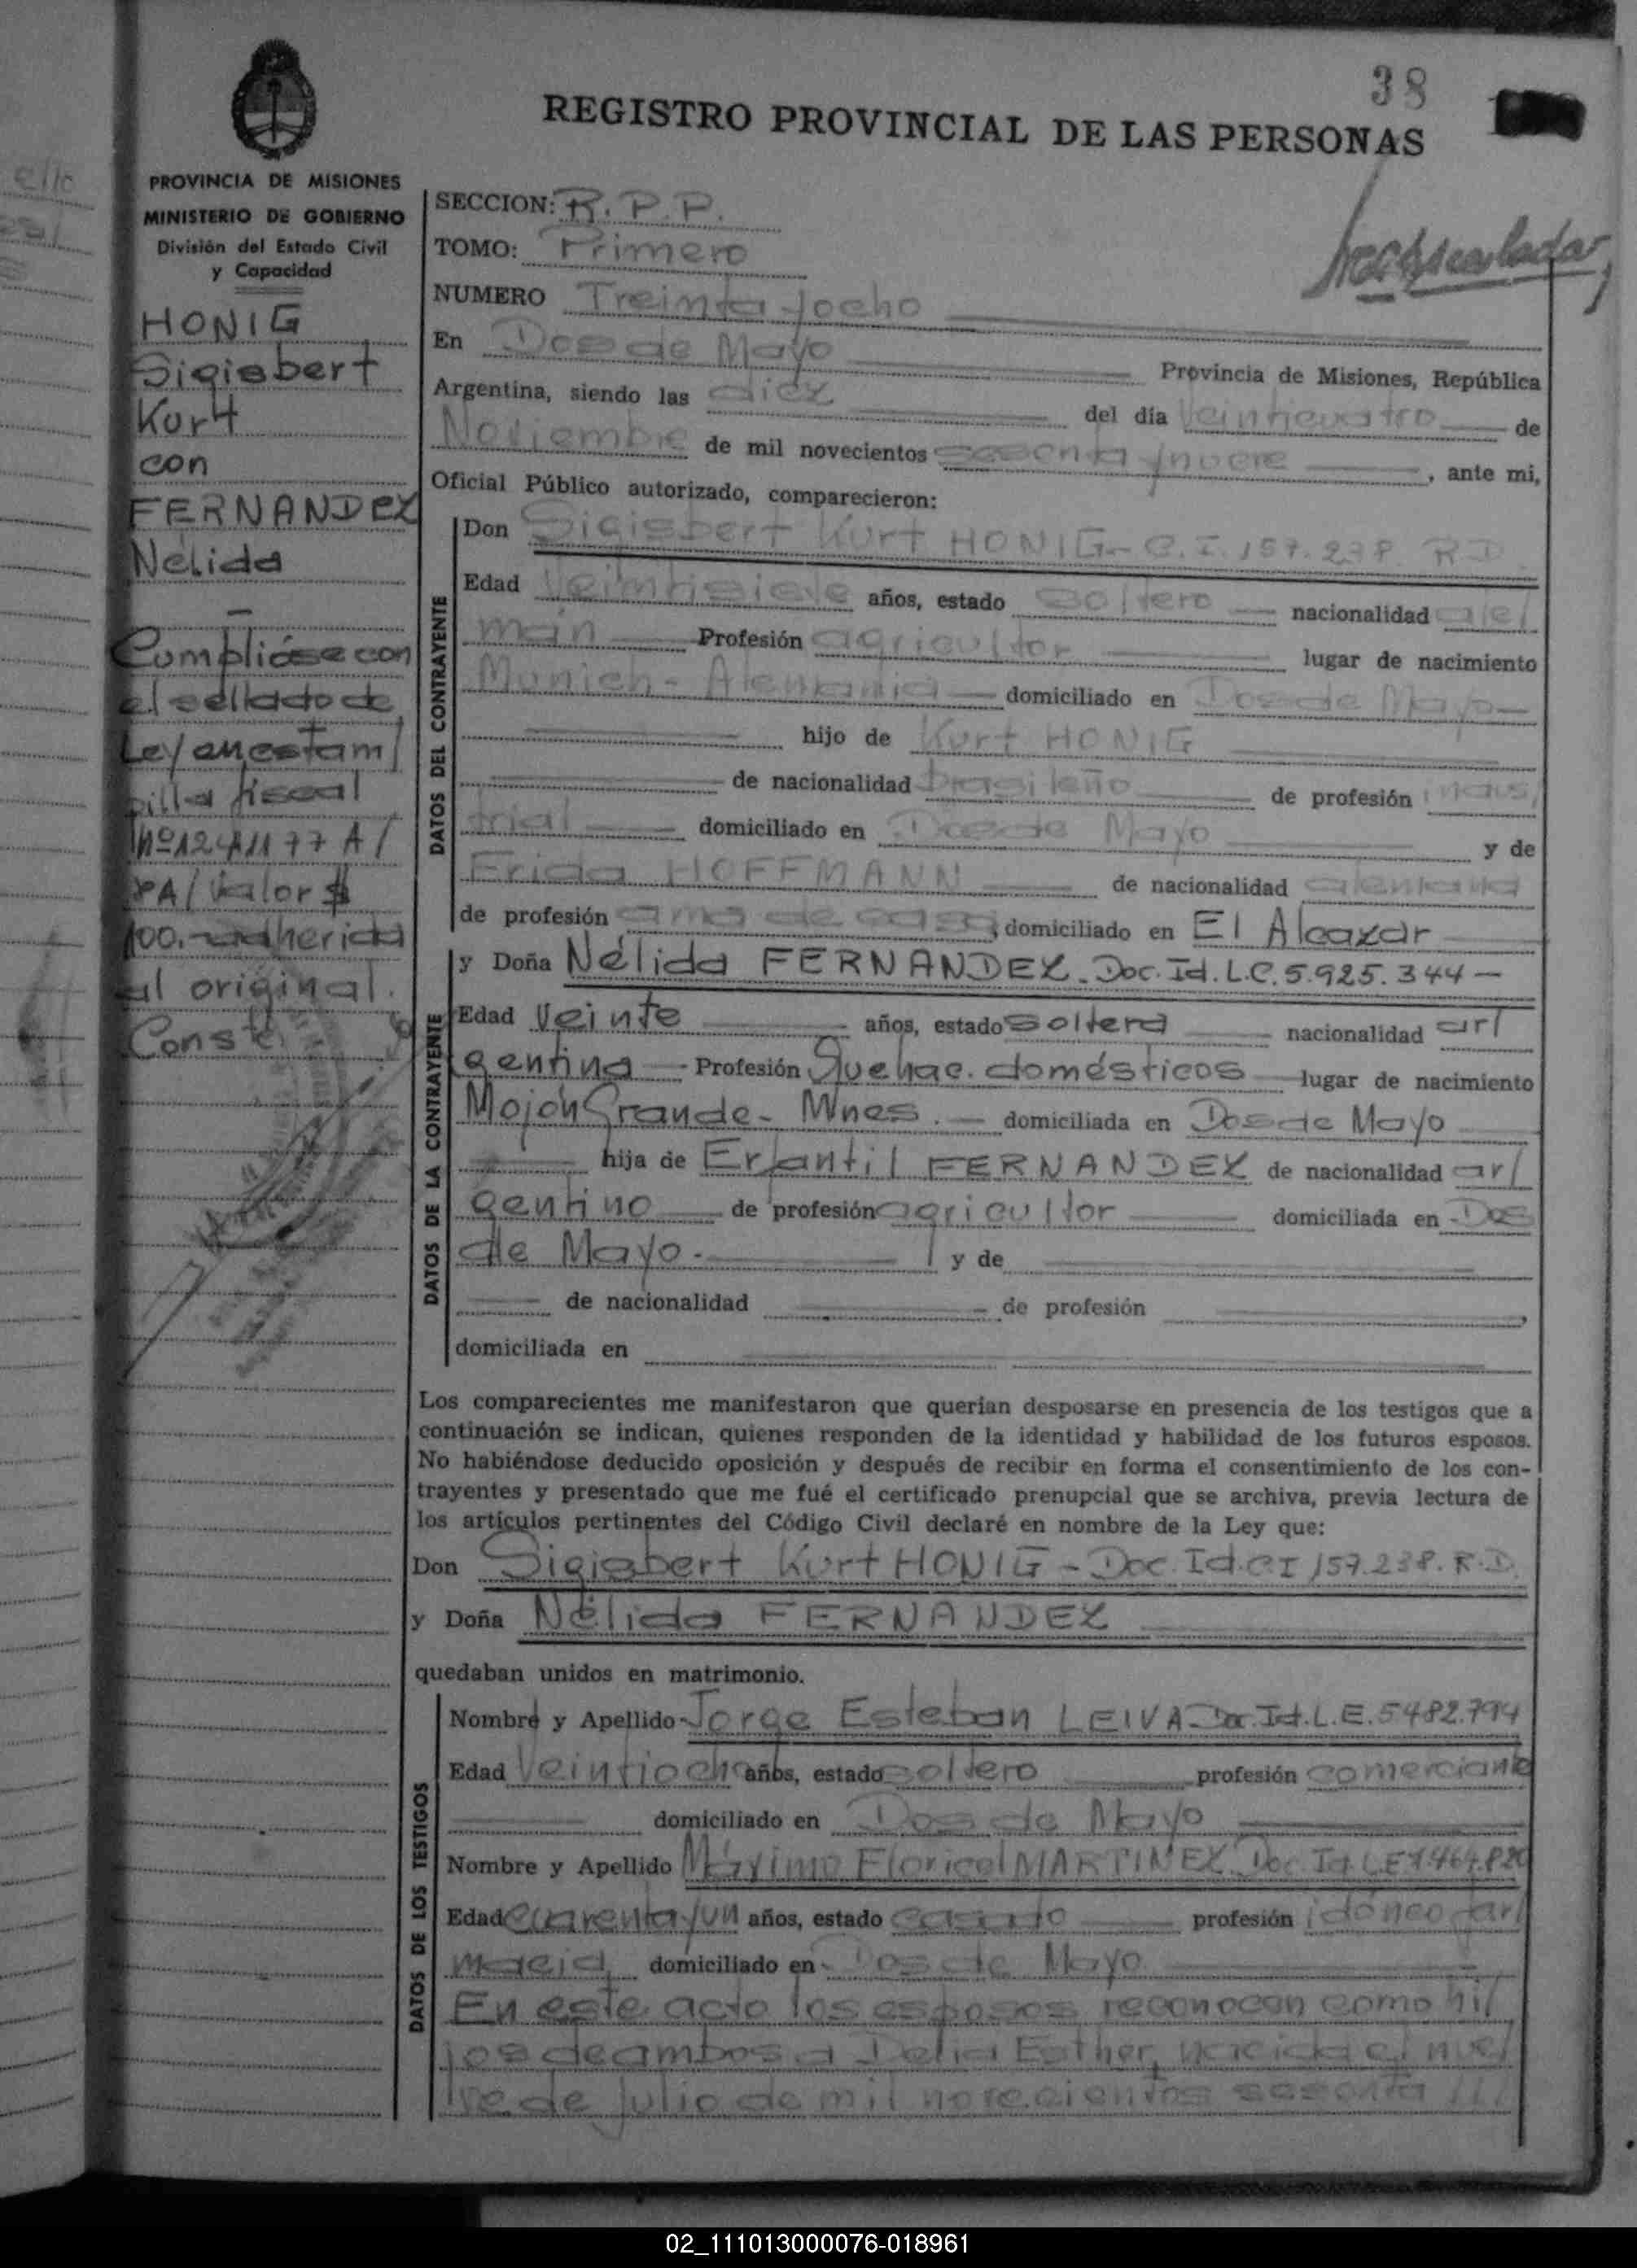 38
REGISTRO PROVINCIAL DE LAS PERSONAS
PROVINCIA DE MISIONES
MINISTERIO DE GOBIERNO
División del Estado Civil
y Capacidad
HONIG
Sigisbert
Kurt
con
FERNANDEZ
Nélida
Cumplióse con
el sellado de
Ley en estam/
pilla fiscal
Valor $
100.- adherida
al original.
Conste.
SECCION: R. P. P.
TOMO: Primero
NUMERO Treinta y ocho
En Dos de Mayo Provincia de Misiones, República
Argentina, siendo las diez del día veinticuatro de
Noviembre de mil novecientos sesenta y nueve, ante mi,
Oficial Público autorizado, comparecieron:
DATOS DEL CONTRAYENTE
Don Sigisbert Kurt HONIG- C.I. 157.238 R D
Edad Veintisiete años, estado soltero nacionalidad ale/
mán Profesión agricultor lugar de nacimiento
Munich - Alemania domiciliado en Dos de Mayo-
hijo de Kurt HONIG
de nacionalidad brasileño de profesión indus/
trial domiciliado en Dos de Mayo y de
Erida HOFFMANN de nacionalidad alemana
de profesión ama de casa, domiciliado en El Alcazar
DATOS DE LA CONTRAYENTE
y Doña Nélida FERNANDEZ. Doc. Id. L.C. 5.925.344 -
Edad Veinte años, estado soltera nacionalidad ar/
gentina Profesión Quehac. domésticos lugar de nacimiento
Mojón Grande- Mnes. domiciliada en Dos de Mayo
hija de Erfantil FERNANDEZ de nacionalidad ar/
gentino de profesión agricultor domiciliada en Dos
de Mayo.- y de
de nacionalidad de profesión
domiciliada en
Los comparecientes me manifestaron que querían desposarse en presencia de los testigos que a
continuación se indican, quienes responden de la identidad y habilidad de los futuros esposos.
No habiéndose deducido oposición y después de recibir en forma el consentimiento de los con-
trayentes y presentado que me fué el certificado prenupcial que se archiva, previa lectura de
los artículos pertinentes del Código Civil declaré en nombre de la Ley que:
Don Sigisbert Kurt HONIG - Doc. Id. C I 157.238. R.D.
y Doña Nélida FERNANDEZ
quedaban unidos en matrimonio.
DATOS DE LOS TESTIGOS
Nombre y Apellido Jorge Esteban LEIVA Doc. Id. L.E. 5482.794
Edad Veintiocho años, estado soltero profesión comerciante
domiciliado en Dos de Mayo
Nombre y Apellido Máximo Floricel MARTINEZ Doc Id L E 7.464.820
Edad cuarenta y un años, estado casado profesión idóneo far/
macia, domiciliado en Dos de Mayo
En este acto los esposos reconocen como hi/
jos de ambos a Delia Esther, nacida el nue/
ve de julio de mil novecientos sesenta ///
02_111013000076-018961